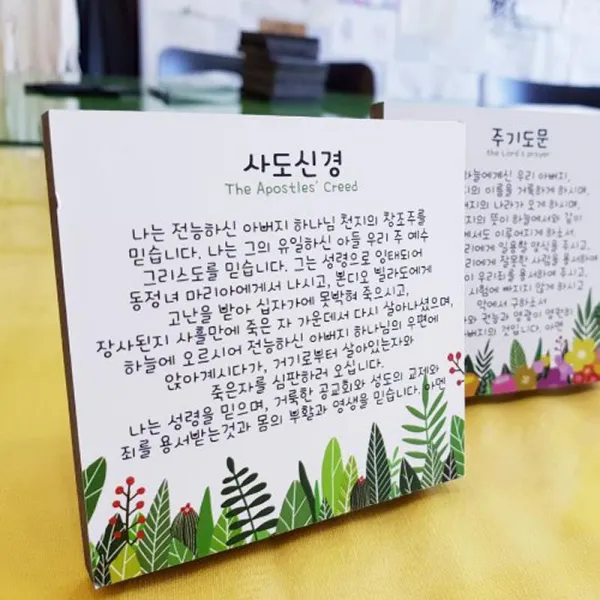 사도신경
The Apostles' Creed
나는 전능하신 아버지 하나님 천지의 창조주를
믿습니다. 나는 그의 유일하신 아들 우리 주 예수
그리스도를 믿습니다. 그는 성령으로 잉태되어
동정녀 마리아에게서 나시고, 본디오 빌라도에게
고난을 받아 십자가에 못박혀 죽으시고,
장사된지 사흘만에 죽은 자 가운데서 다시 살아나셨으며,
하늘에 오르시어 전능하신 아버지 하나님의 우편에
앉아계시다가, 거기로부터 살아있는자와
죽은자를 심판하러 오십니다.
나는 성령을 믿으며, 거룩한 공교회와 성도의 교제와
죄를 용서받는것과 몸의 부활과 영생을 믿습니다. 아멘
주기도문
the Lord's prayer
하늘에계신 우리 아버지,
이름을 거룩하게 하시며,
나라가 오게 하시며,
뜻이 하늘에서와 같이
이루어지게 하소서
일용할 양식을 주시고,
잘못한 사람을 용서하여
우리죄를 용서하여 주시고,
시험에 빠지지 않게 하시고
악에서 구하소서
권능과 영광이 영원히
것입니다. 아멘